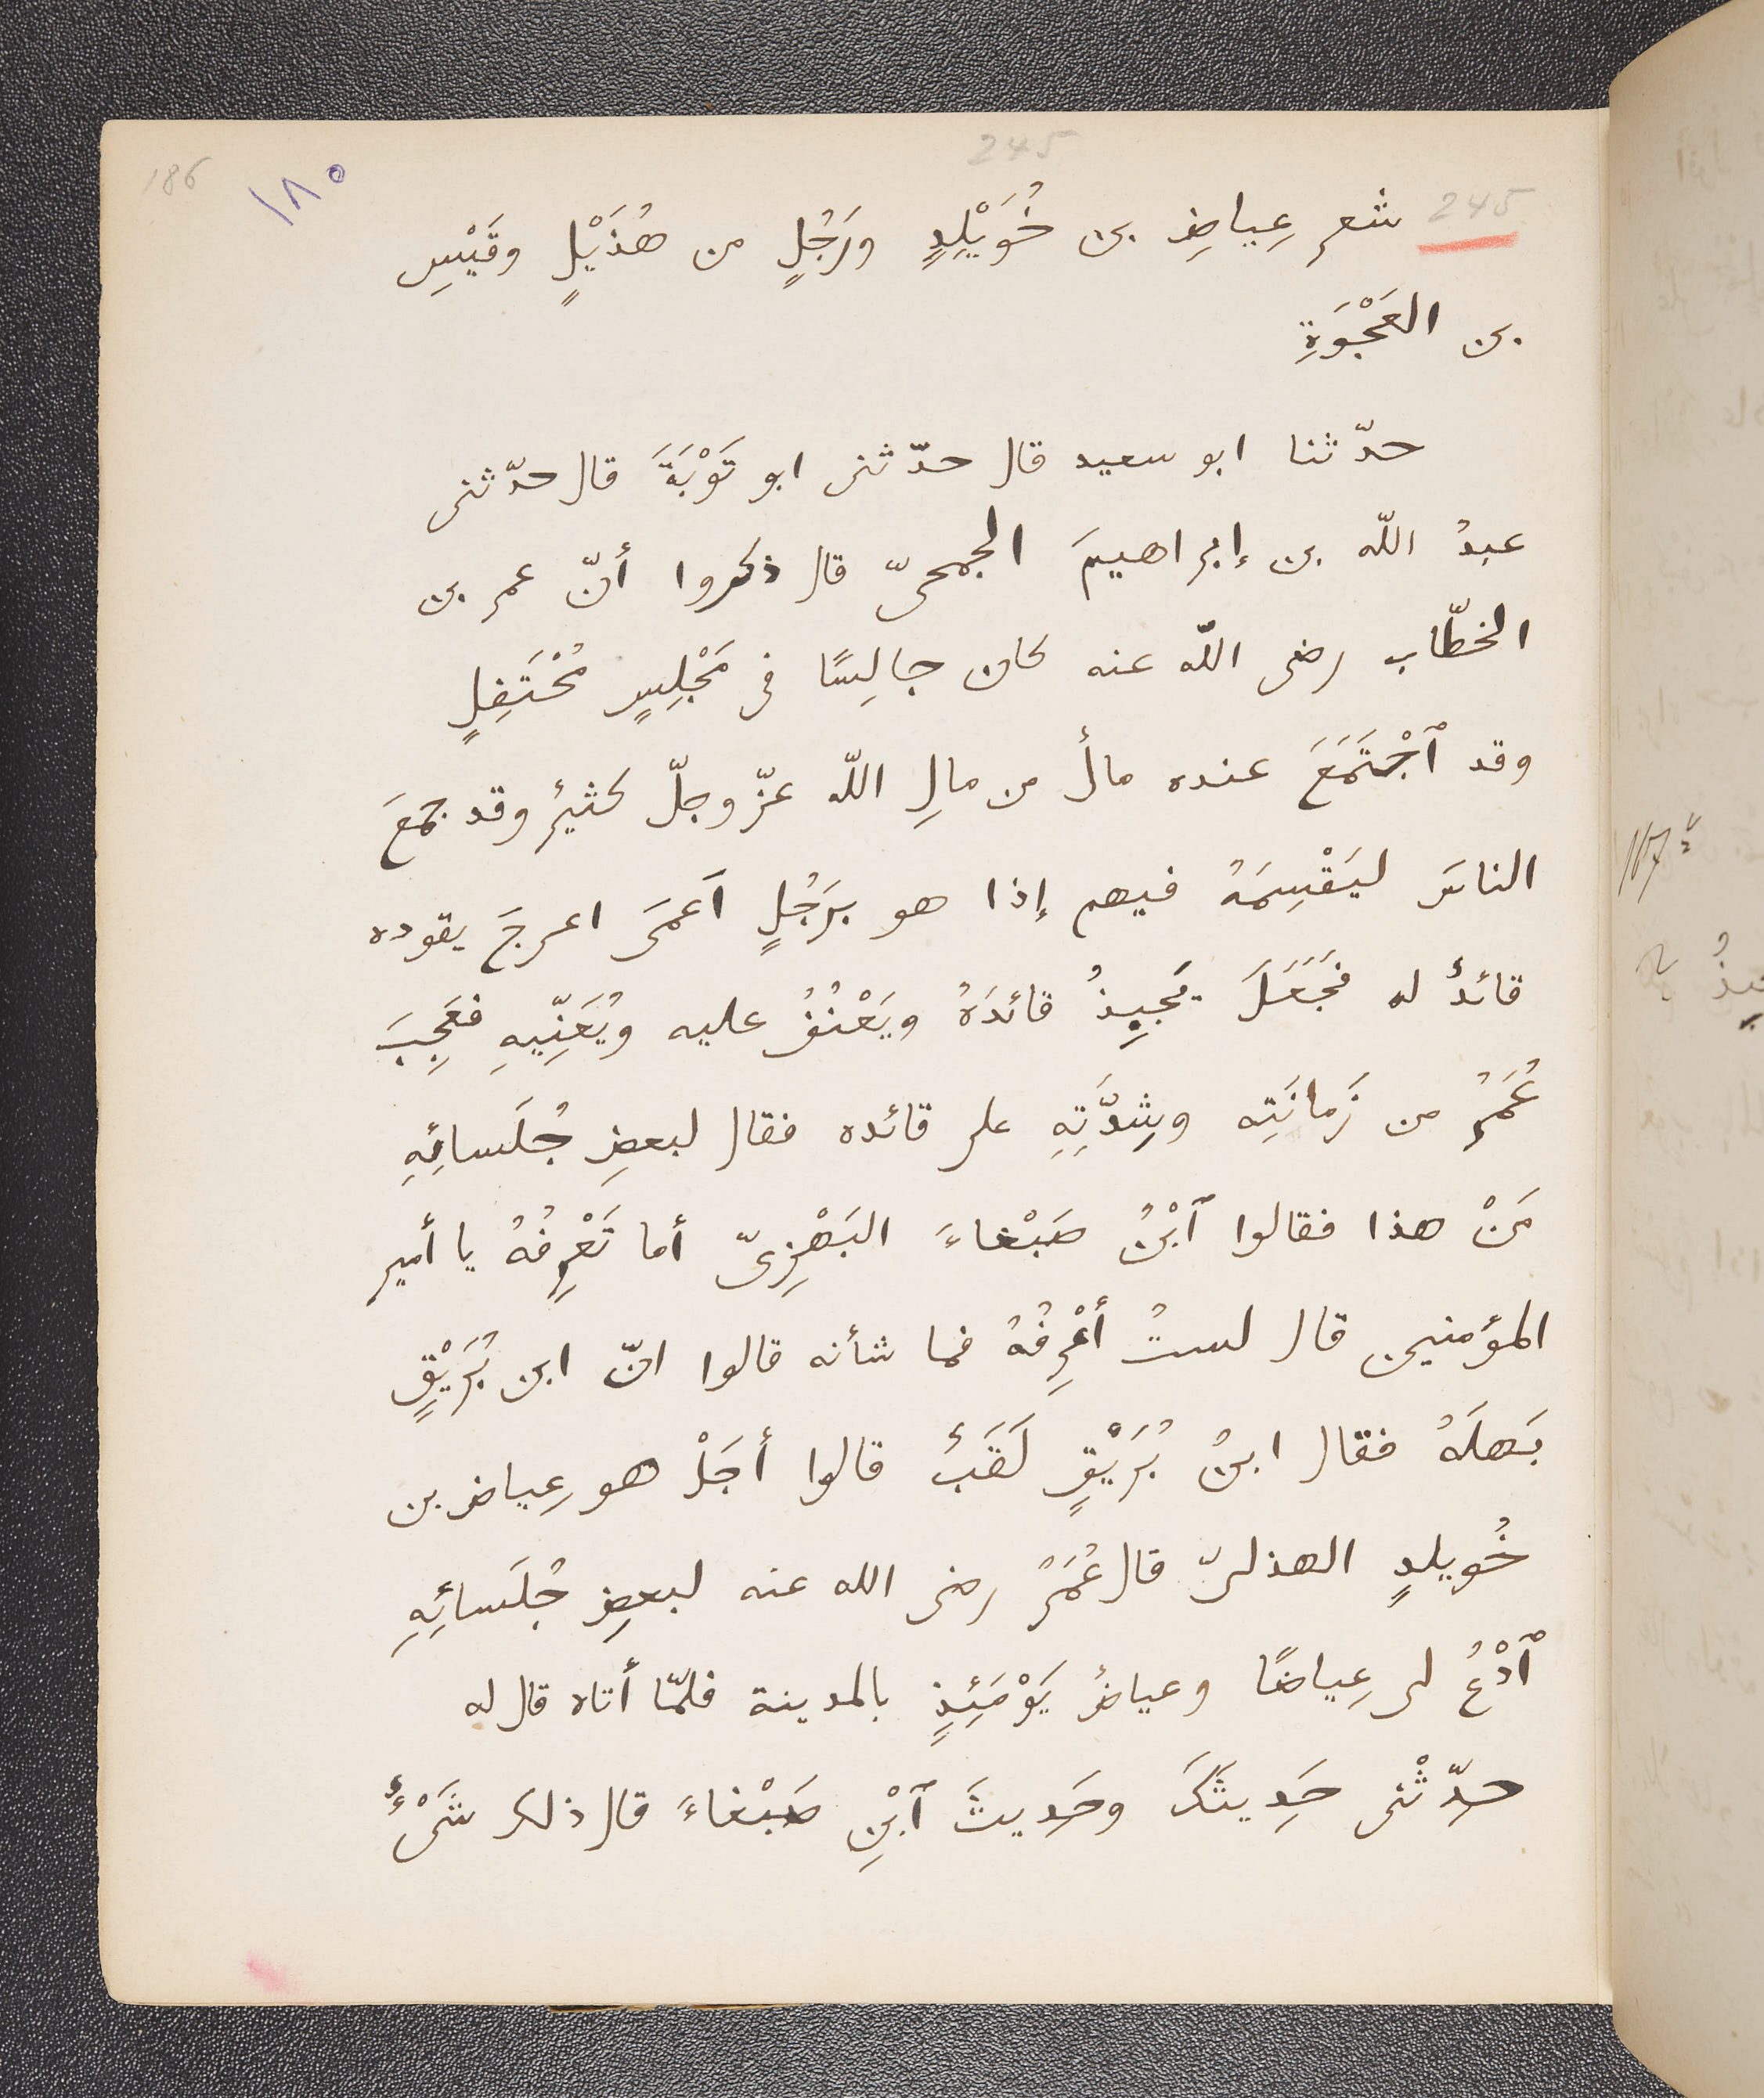 186
١٨٥
245
245
شعر عِياضِ بن خُوَيْلِدٍ ورَجُلٍ من هُذَيْلٍ وقَيْسِ
بن العَجْوَةِ
حدّثنا ابو سعيد قال حدّثنى ابو تَوْبَةَ قال حدّثنى
عبدُ اللّه بن إبراهيمَ الجمحىّ قال ذكروا أنّ عمر بن
الخطّاب رضى اللّه عنه كان جالِسًا فى مَجْلِسٍ مُحْتَفِلٍ
وقد ٱجْتَمَعَ عنده مالٌ من مالِ اللّه عزّ وجلّ كثيرٌ وقد جمعَ
الناسَ ليَقْسِمَهُ فيهم إذا هو برَجُلٍ اَعمَى اعرجَ يقوده
قائدٌ له فجَعَلَ يَجبِذُ قائدَهُ ويَعْنُفُ عليه ويُعَنِّيهِ فعَجِبَ
عُمَرُ من زَمانَتِه وشِدَّتِهِ على قائده فقال لبعضِ جُلَسائِهِ
مَنْ هذا فقالوا ٱبْنُ صَبْغاءَ البَهْزِىّ أما تَعْرِفُهُ يا أمير
المؤمنين قال لستُ أعْرِفُهُ فما شأنه قالوا انّ ابن بُرَيْقٍ
بَهلَهُ فقال ابنُ بُرَيْقٍ لَقَبٌ قالوا أجَلْ هو عِياض بن
خُويلدٍ الهذلىّ قال عُمَرُ رضى الله عنه لبعضِ جُلَسائِهِ
ٱدْعُ لى عِياضًا وعياضٌ يَوْمَئِذٍ بالمدينة فلمّا أتاه قال له
حدِّثْنى حَدِيثَكَ وحَدِيثَ ٱبْنِ صَبْغاءَ قال ذلك شَىْءٌ